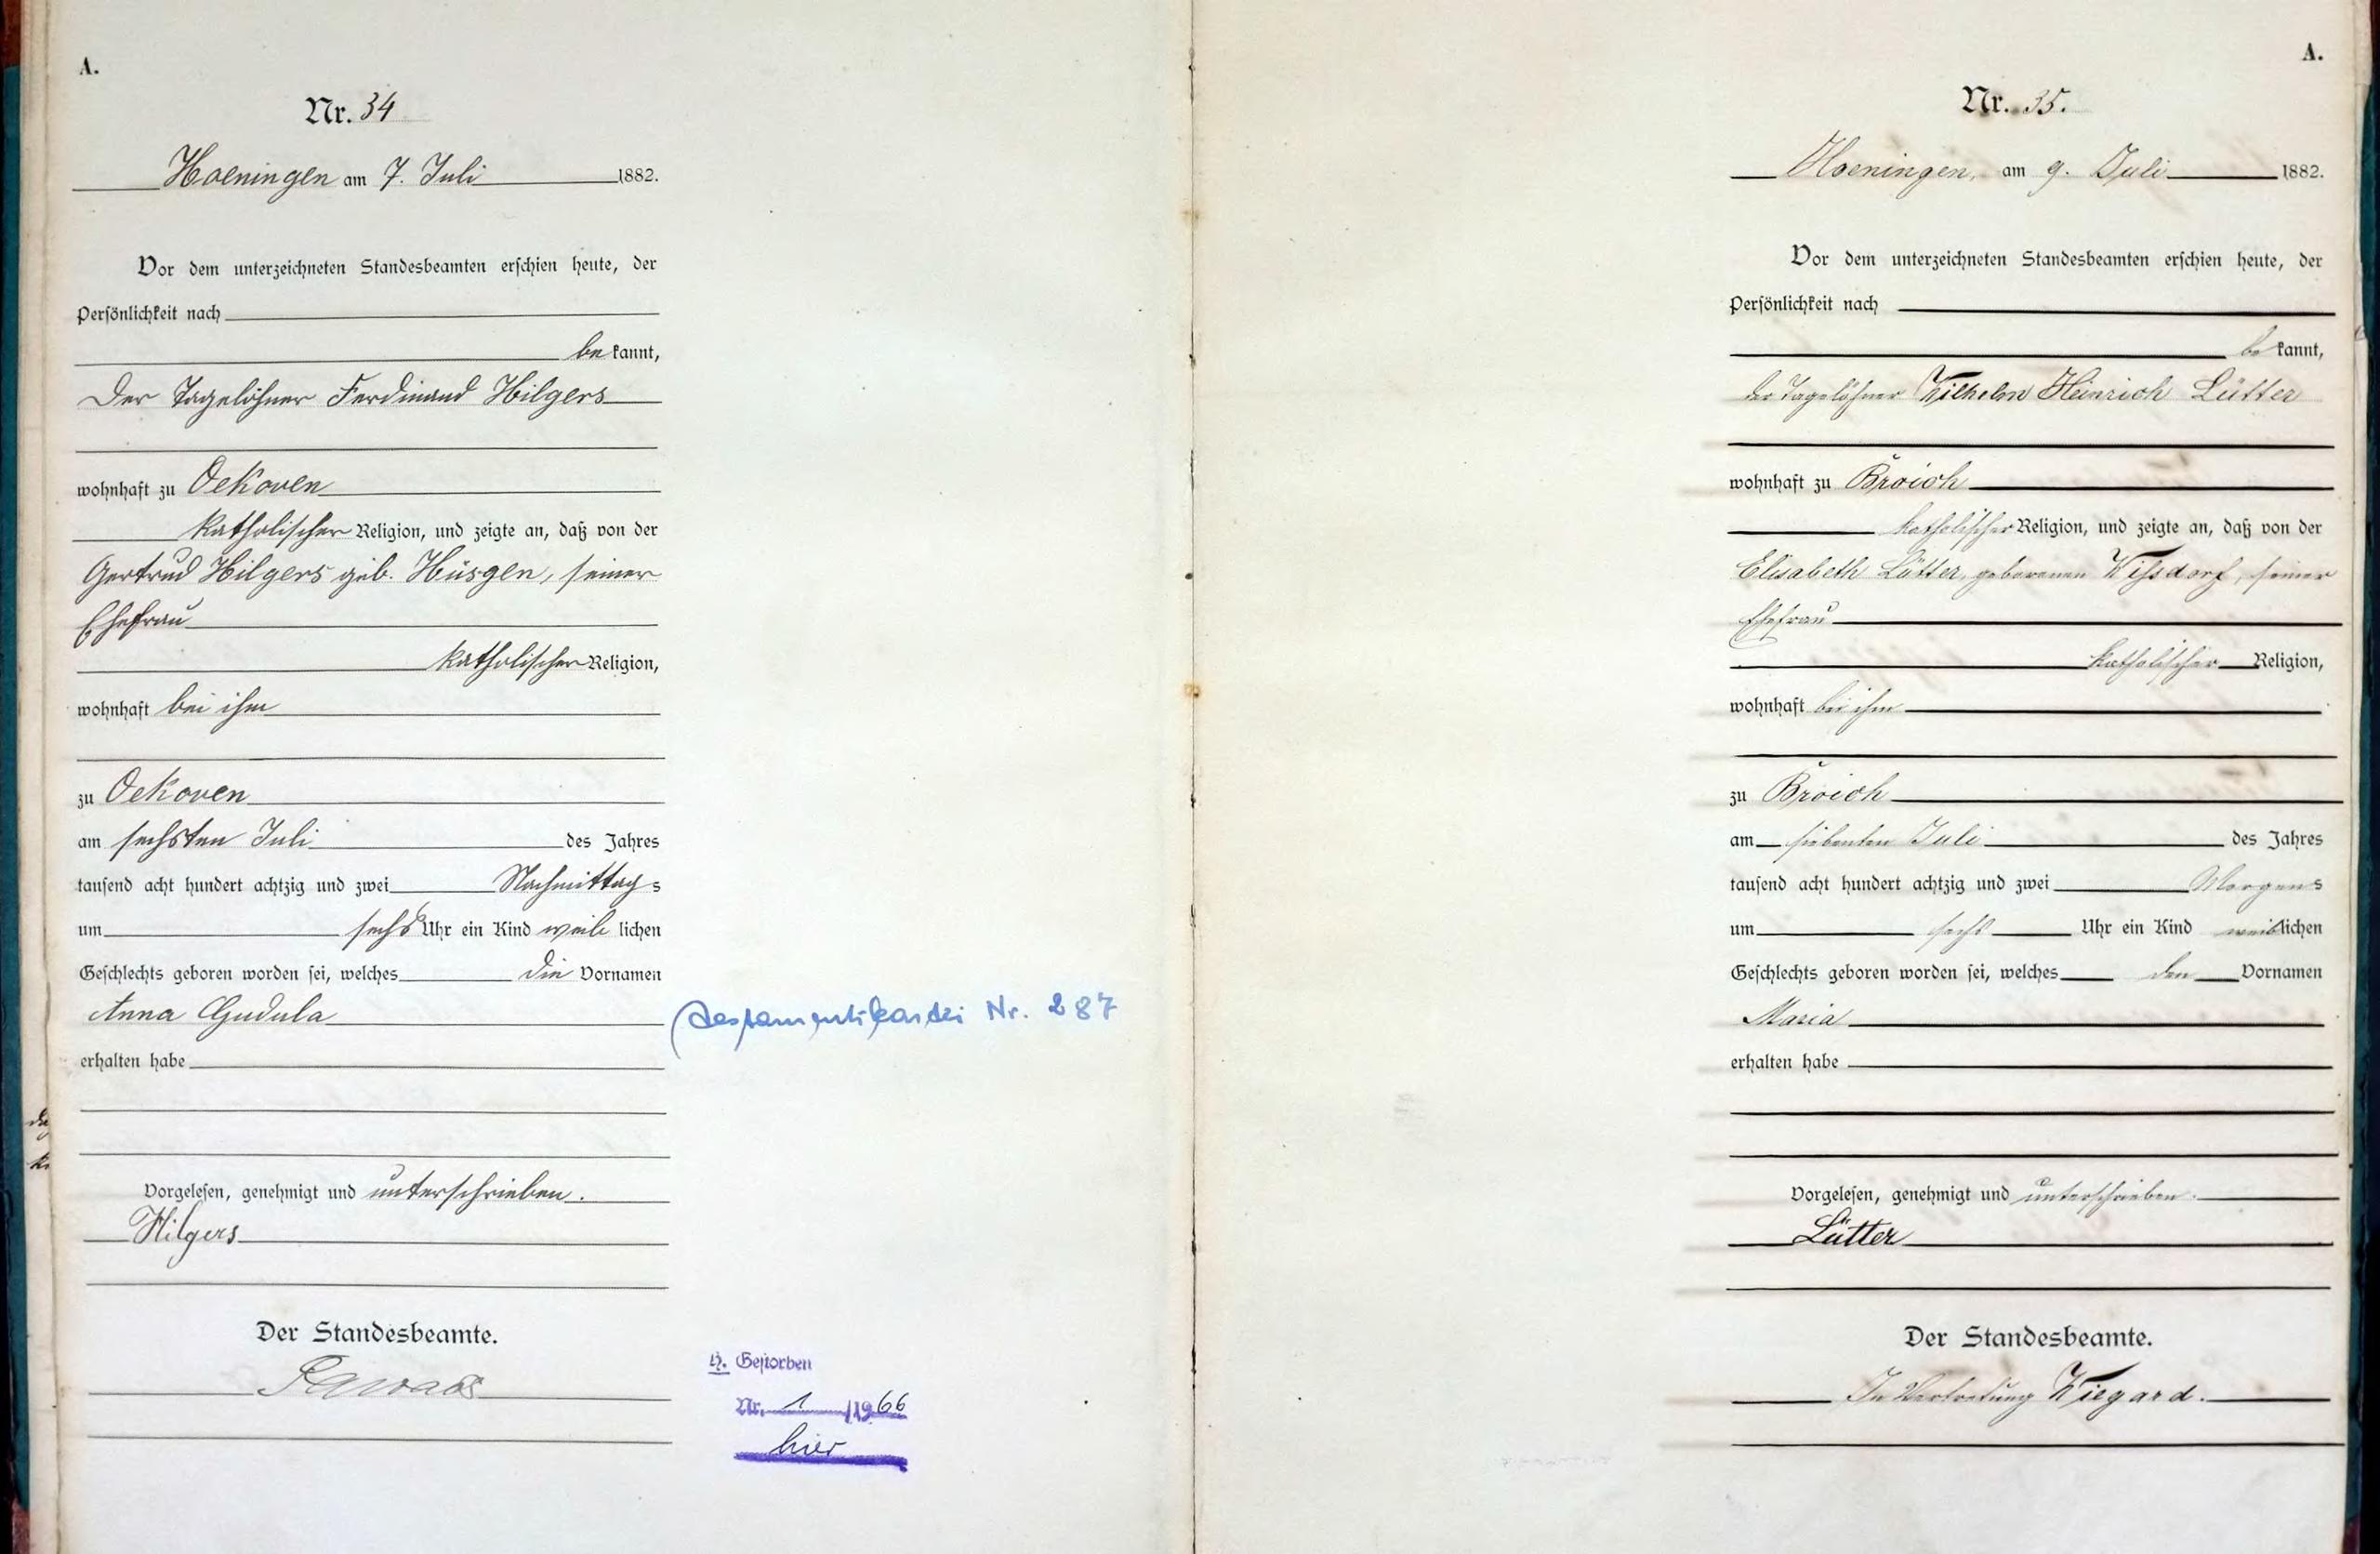 A.
Nr. 34
Hoeningen am 7. Juli 1882.
Vor dem unterzeichneten Standesbeamten erschien heute, der
Persönlichkeit nach
be kannt,
der Tagelöhner Ferdinand Hilgers
wohnhaft zu Oekoven
katholischer Religion, und zeigte an, daß von der
Gertrud Hilgers geb. Hüsgen, seiner
Ehefrau
katholischer Religion,
wohnhaft bei ihm
zu Oekoven
am sechsten Juli des Jahres
tausend acht hundert achtzig und zwei Nachmittag s
um sechs Uhr ein Kind weib lichen
Geschlechts geboren worden sei, welches die Vornamen
Anna Gudula
erhalten habe
Vorgelesen, genehmigt und unterschrieben.
Hilgers
Der Standesbeamte.
Testamentskartei Nr. 287
H. Gestorben
Nr. 1 /1966
hier
A.
Nr. 35.
Hoeningen, am 9. Juli 1882.
Vor dem unterzeichneten Standesbeamten erschien heute, der
Persönlichkeit nach
be kannt,
der Tagelöhner Wilhelm Heinrich Lütter
wohnhaft zu Broich
katholischer Religion, und zeigte an, daß von der
Elisabeth Lütter, geborenen Wissdorf, seiner
Ehefrau
katholischer Religion,
wohnhaft bei ihm
zu Broich
am siebenten Juli des Jahres
tausend acht hundert achtzig und zwei Morgens
um sechs Uhr ein Kind weiblichen
Geschlechts geboren worden sei, welches den Vornamen
Maria
erhalten habe
Vorgelesen, genehmigt und unterschrieben.
Lütter
Der Standesbeamte.
In Vertretung Wiegard.